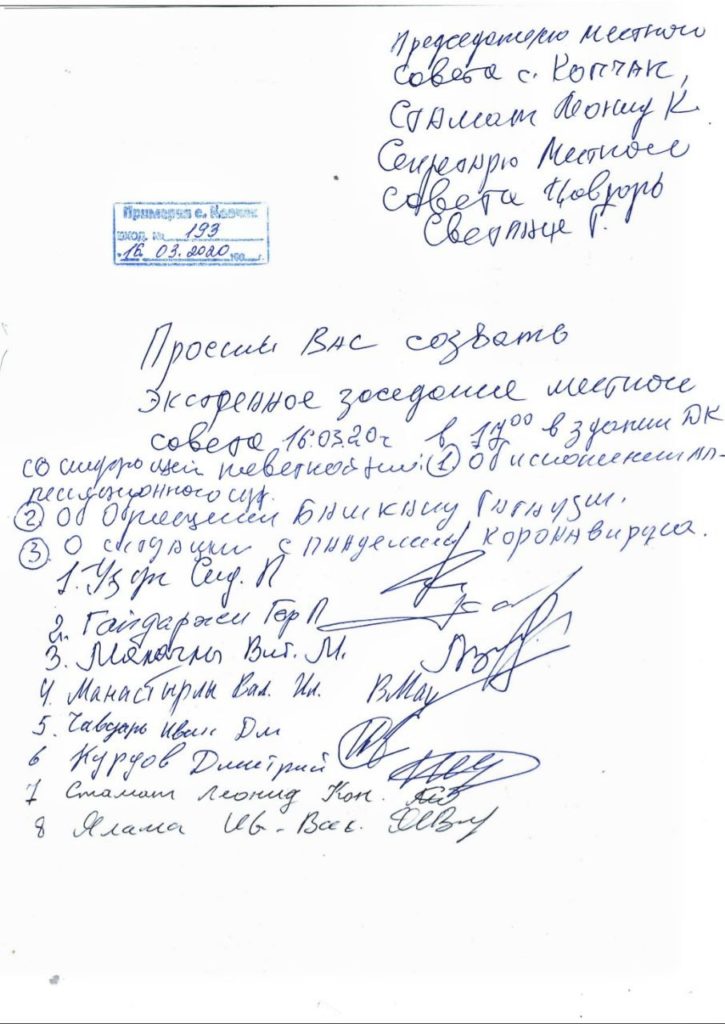 Председателю местного
совета с. Копчак,
Стамат Леониду К.
Секретарю Местного
совета Чавдарь
Светлане Г.
Примэрия с. Копчак
вход. № 193
"16" 03. 2020
Просим Вас созвать
экстренное заседание местного
совета 16.03.20г в 17 00 в здании ДК
со следующей повесткой дня: ① Об исполнении ап-
пеляционного суд.
② Об Обращении Башкану Гагаузии.
③ О ситуации с пандемией коронавируса.
1. Узун Сид. П
2. Гайдаржи Гер П
3. Малачлы Вит. М.
4. Манастырлы Вал. Ил. ВМан
5. Чавдарь Иван Дм
6 Курдов Дмитрий
7 Стамат Леонид Кон.
8 Ялама Ив. Вас.